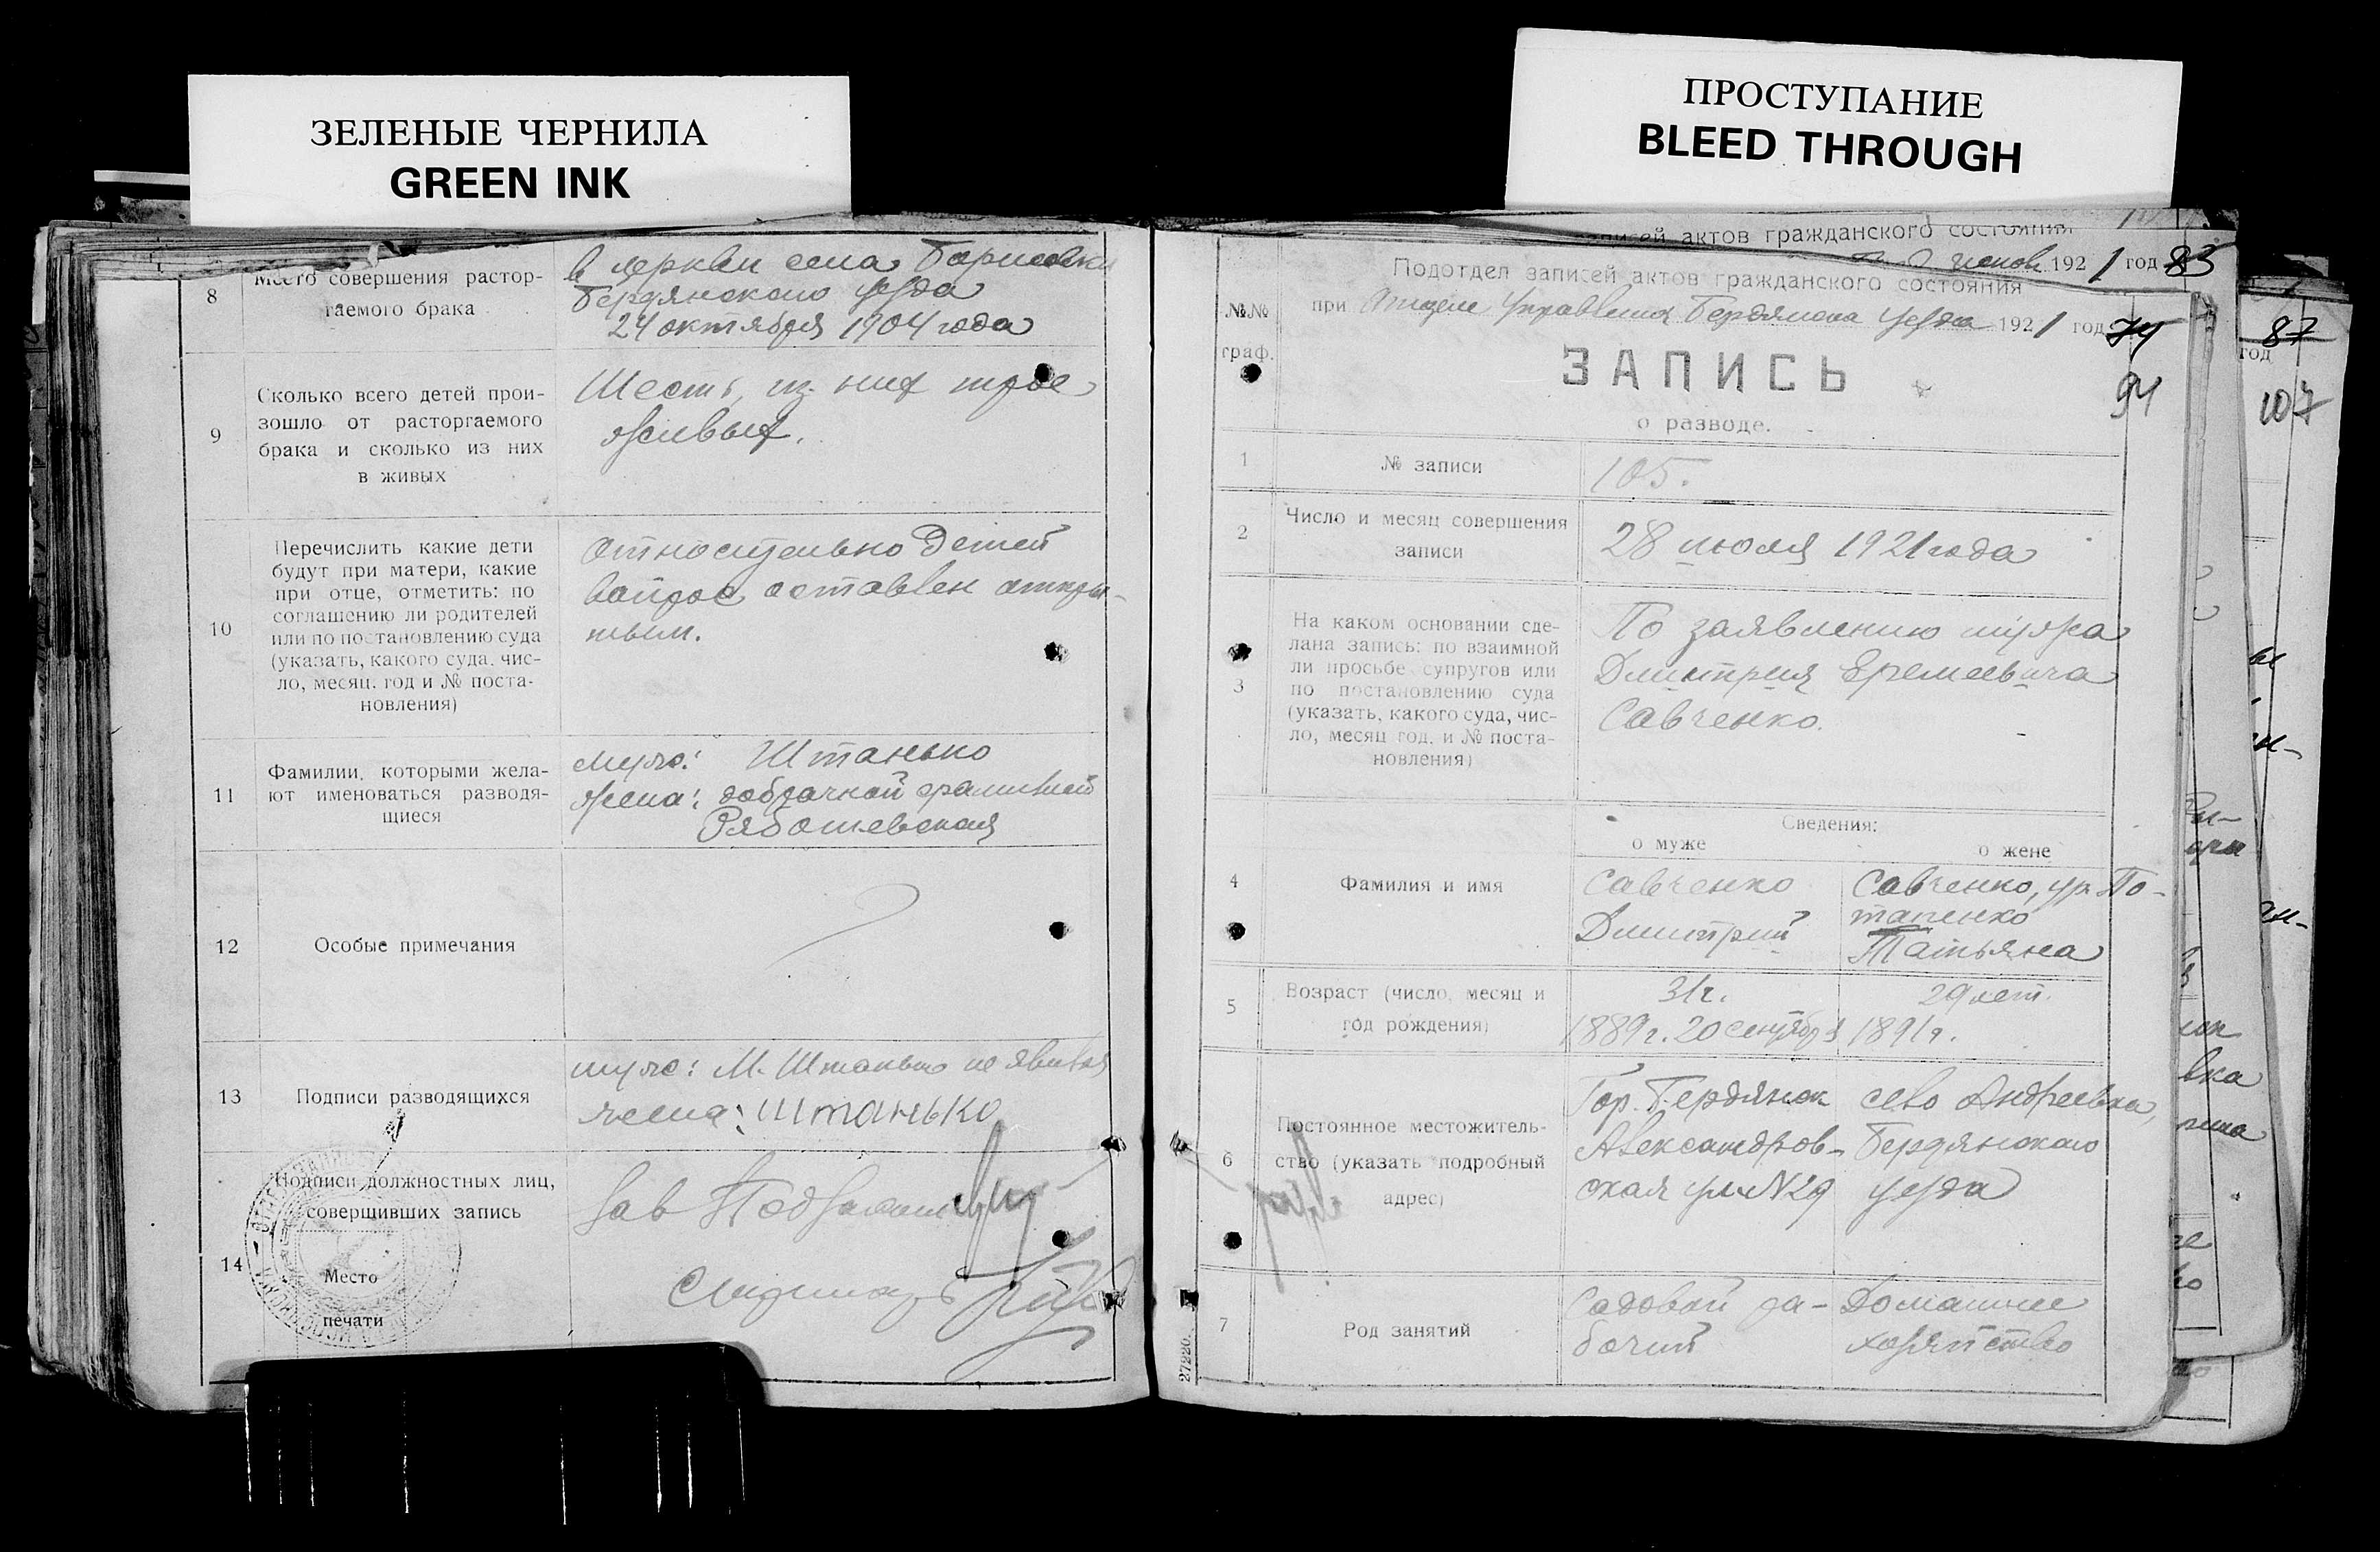 ЗЕЛЕНЫЕ ЧЕРНИЛА
GREEN INK
ПРОСТУПАНИЕ
BLEED THROUGH
8
Место совершения растор-
гаемого брака
в церкви села Борисовки
Бердянского уезда
24 октября 1904 года
9
Сколько всего детей прои-
зошло от расторгаемого
брака и сколько из них
в живых
Шесть, из них трое
живых.
10
Перечислить какие дети
будут при матери, какие
при отце, отметить: по
соглашению ли родителей
или по постановлению суда
(указать, какого суда, чис-
ло, месяц, год и № поста-
новления)
Относительно детей
вопрос оставлен откры-
тым.
11
Фамилии, которыми жела-
ют именоваться разводя-
щиеся
муж: Штанько
жена: добрачной фамилией
Рябошевская
12
Особые примечания
13
Подписи разводящихся
муж: М. Штанько не явился
жена: Штанько
14
Подписи должностных лиц,
совершивших запись
Место
печати
Зав
записей актов гражданского состояния
192 1 год 83
Подотдел записей актов гражданского состояния
при Отделе Управления Бердянска уезда 192 1 год 74
94
87
год
107
№№
граф.
ЗАПИСЬ
о разводе.
1
№ записи
105.
2
Число и месяц совершения
записи
28 июля 1921 года
3
На каком основании сде-
лана запись: по взаимной
ли просьбе супругов или
по постановлению суда
(указать, какого суда, чис-
ло, месяц, год, и № поста-
новления)
По заявлению мужа
Дмитрия Еремеевича
Савченко.
Сведения:
о муже
о жене
4
Фамилия и имя
Савченко
Дмитрий
Савченко, ур. По-
тапенко
Татьяна
5
Возраст (число, месяц и
год рождения)
31 г.
1889 г. 20 сентября
29 лет.
1891 г.
6
Постоянное местожитель-
ство (указать подробный
адрес)
Гор. Бердянск
Александров-
ская ул. № 29
село Андреевка,
Бердянского
уезда
7
Род занятий
Садовый ра-
бочий
Домашнее
хозяйство
27220.